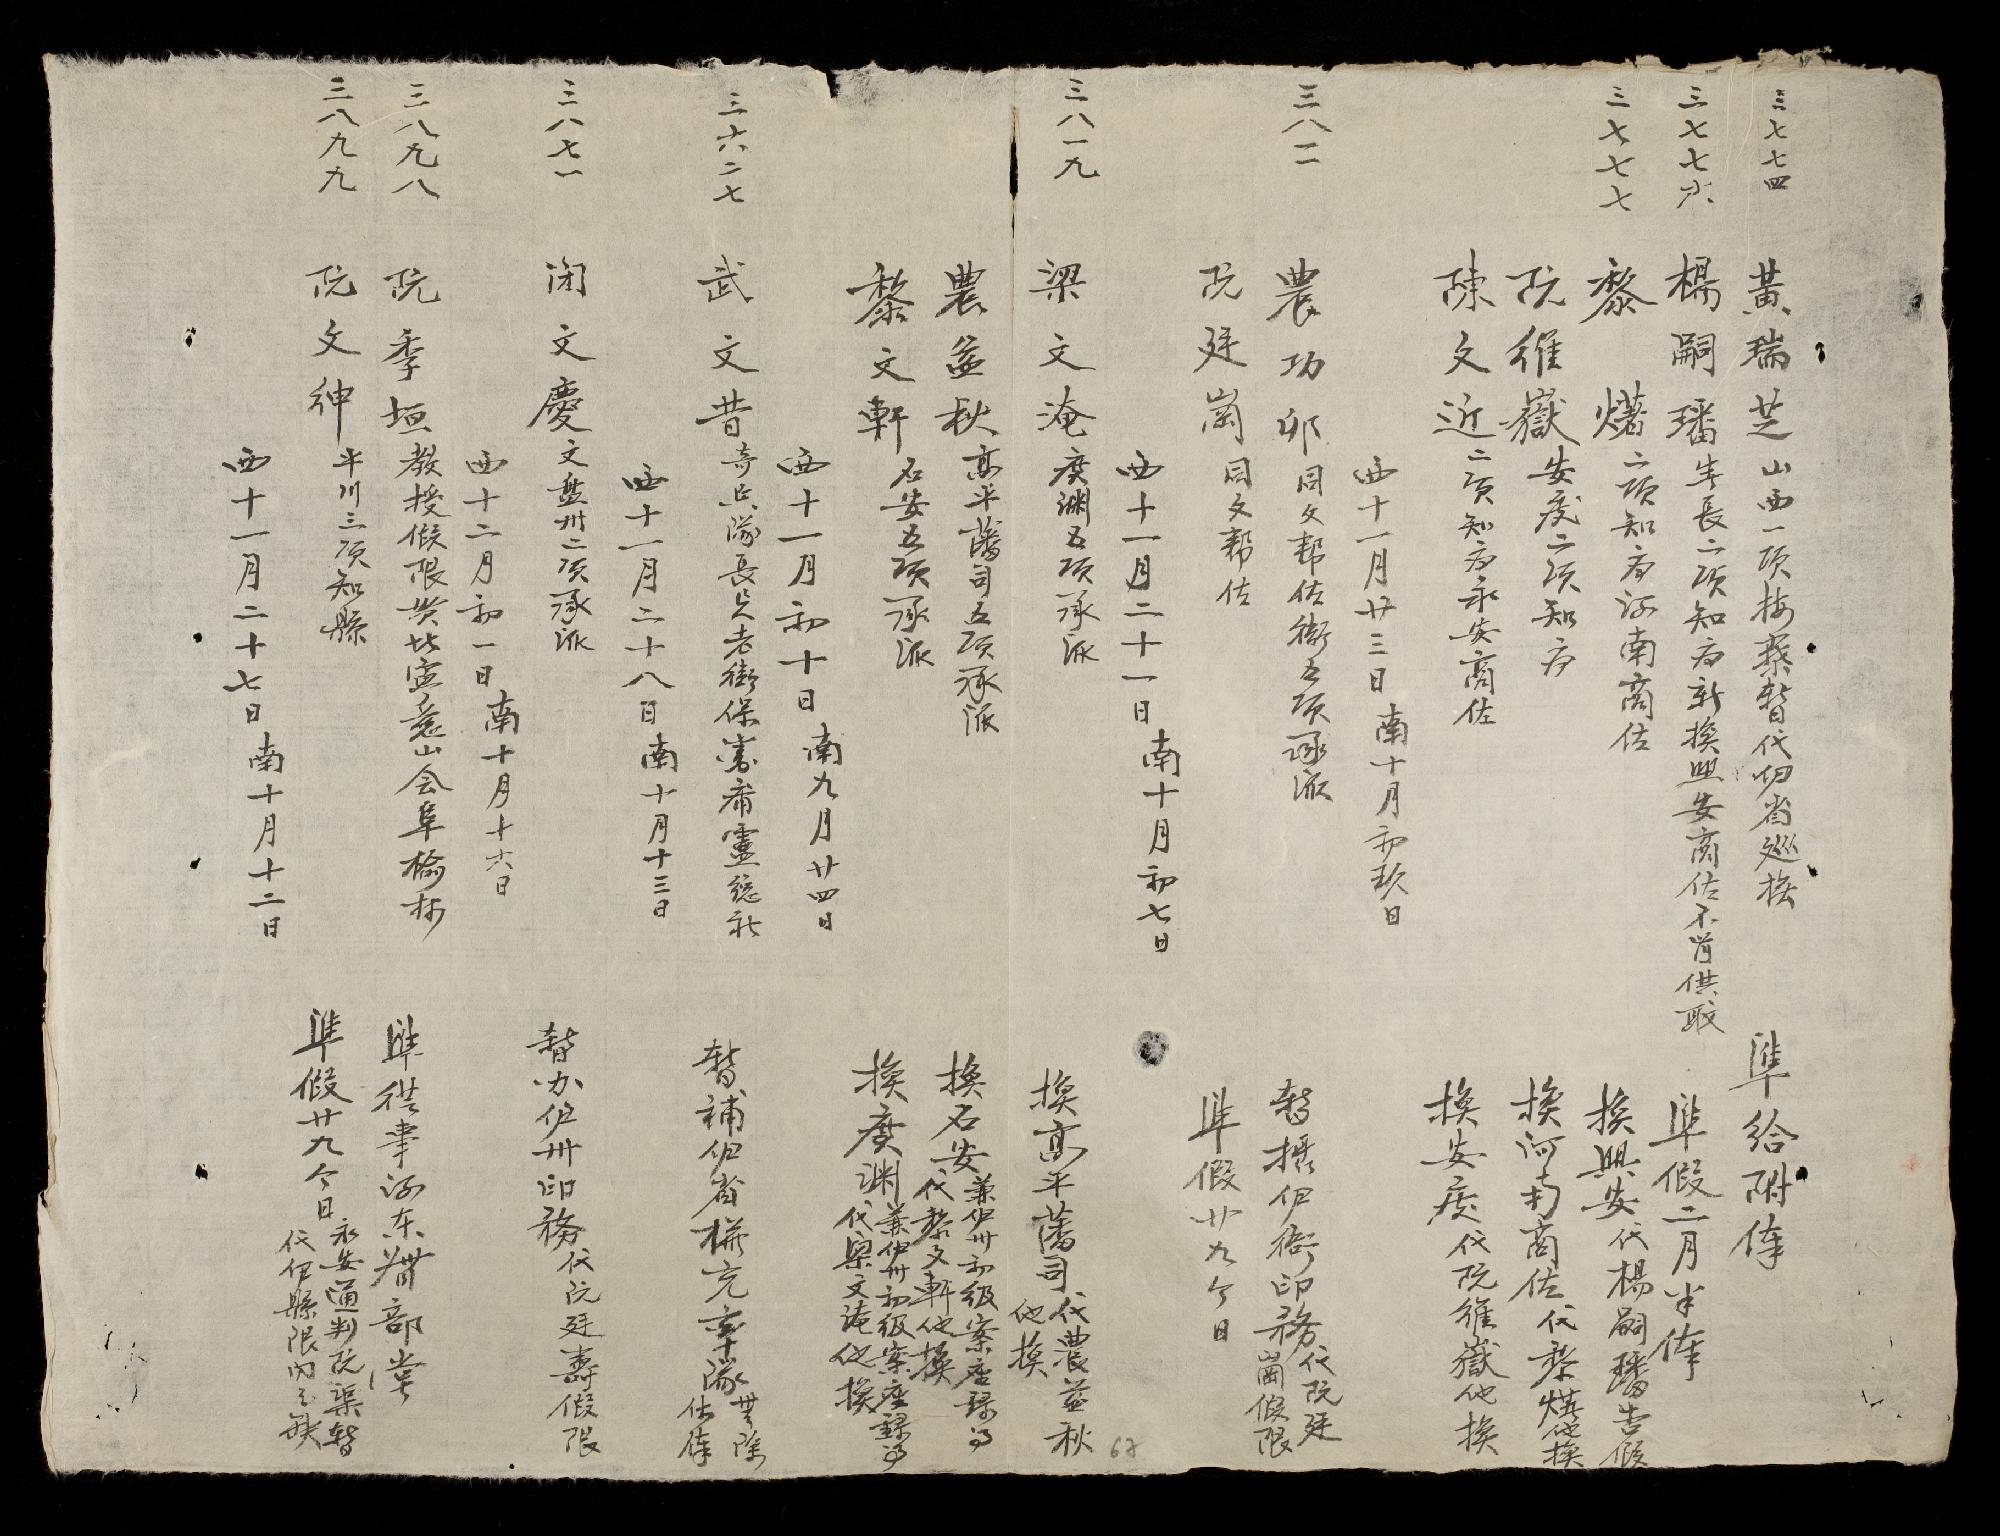 三七七四 黃瑞芝 山西一項按察暫代四省巡撫 準給附俸
三七七六 楊嗣璠 安長二項知府新換興安商佐不肯供職 準假二月半俸
三七七七 黎㷮 二項知府河南商佐 換興安 代楊嗣璠告假
阮維嶽 安度二項知府 換河南商佐 代黎㷮他換
陳文近 二項知府永安商佐 換安度 代阮維嶽他換
西十一月廿三日南十月初玖日
三八一一 農功卯 同文幫佐銜五項承派 暫攝伊衙印務 代阮廷崗假限
阮廷崗 同文幫佐 準假廿九个日
西十一月二十一日南十月初七日
三八一九 梁文淹 廣淵五項承派 換高平藩司 代農益秋他換
農益秋 高平藩司五項承派 換石安 兼伊州初級案座錄事 代黎文軒他換
黎文軒 石安五項承派 換廣淵 兼伊州初級案座錄事 代梁文淹他換
西十一月初十日南九月廿四日
三六二七 武文昔 奇兵隊長兵老街保霽霑總社 暫補伊省 充率隊
西十一月二十八日南十月十三日
三八七一 闭文慶 文盤州二項承派 暫办伊州印務 代阮廷壽假限
西十二月初一日南十月十六日
三八九八 阮季垣 教授假限 準從事河东 部堂
三八九九 阮文紳 平川三項知縣 準假廿九个日 永安通判阮渠暫代伊縣限內之缺
西十一月二十七日南十月十二日
67